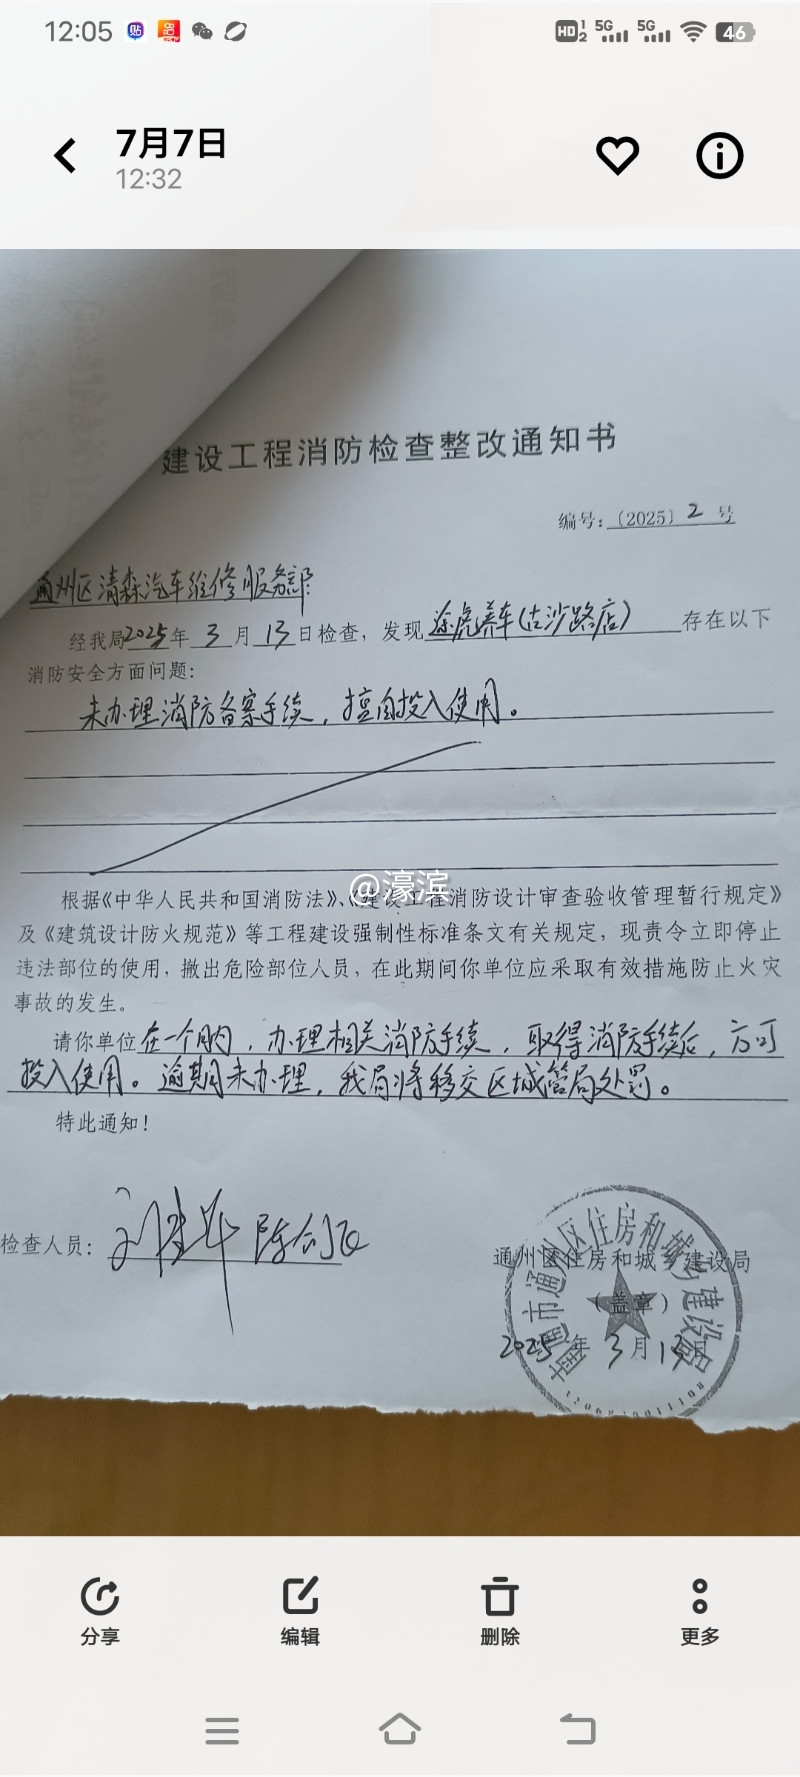 12:05
HD 1 2 5G 5G 46
7月7日
12:32
建设工程消防检查整改通知书
编号：〔2025〕2号
通州区清森汽车维修服务部
经我局2025年3月13日检查，发现途虎养车(古沙路店)存在以下
消防安全方面问题：
未办理消防备案手续，擅自投入使用。
@濠滨
根据《中华人民共和国消防法》、《建设工程消防设计审查验收管理暂行规定》
及《建筑设计防火规范》等工程建设强制性标准条文有关规定，现责令立即停止
违法部位的使用，撤出危险部位人员，在此期间你单位应采取有效措施防止火灾
事故的发生。
请你单位在一个月内，办理相关消防手续，取得消防手续后，方可
投入使用。逾期未办理，我局将移交区城管局处罚。
特此通知！
检查人员：
通州区住房和城乡建设局
（盖章）
2025年3月13日
南通市通州区住房和城乡建设局
分享
编辑
删除
更多